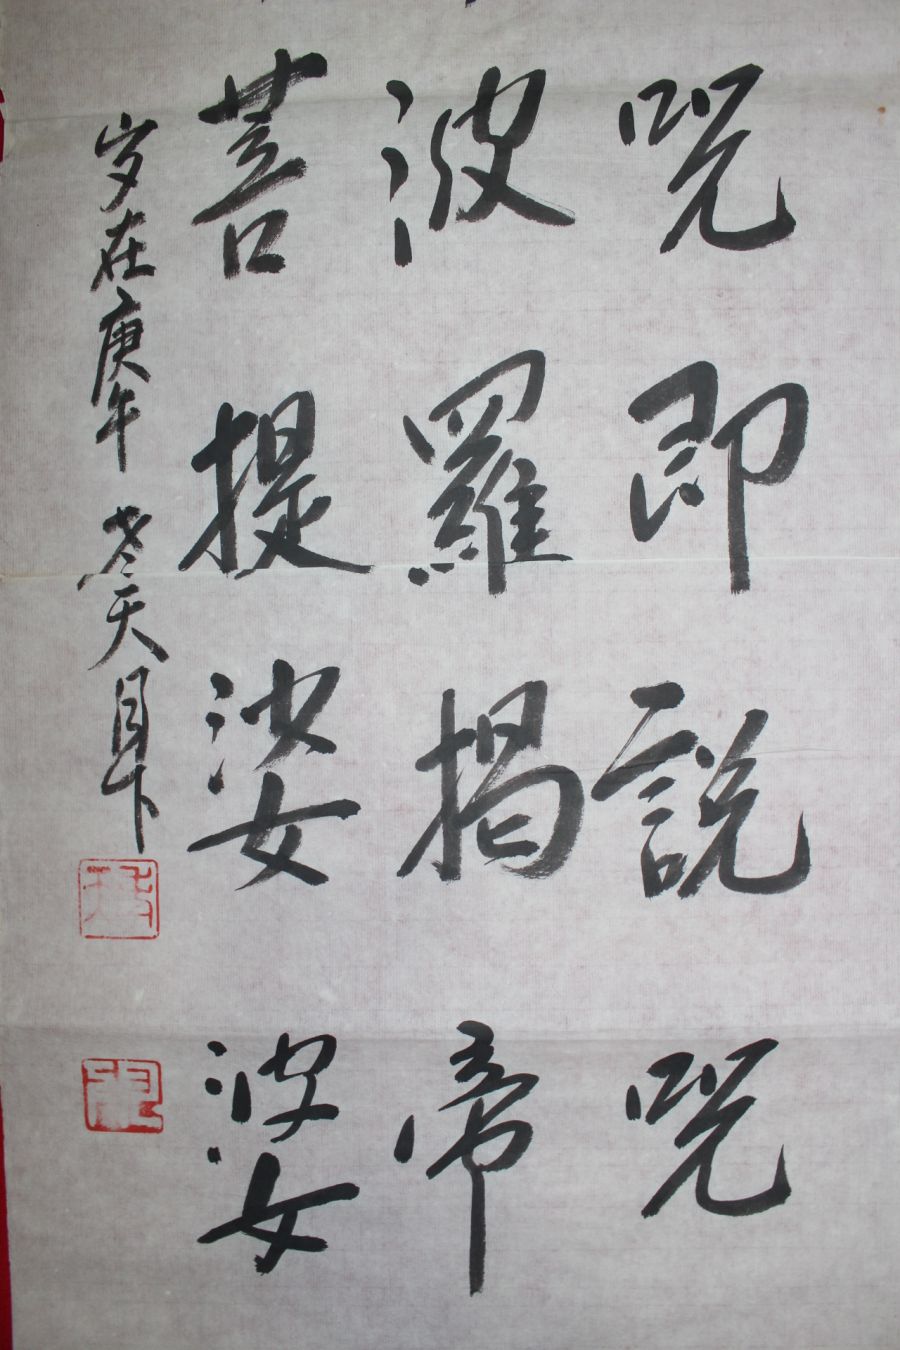 咒即說咒
波羅揭帝
菩提娑婆
岁在庚午冬天目下